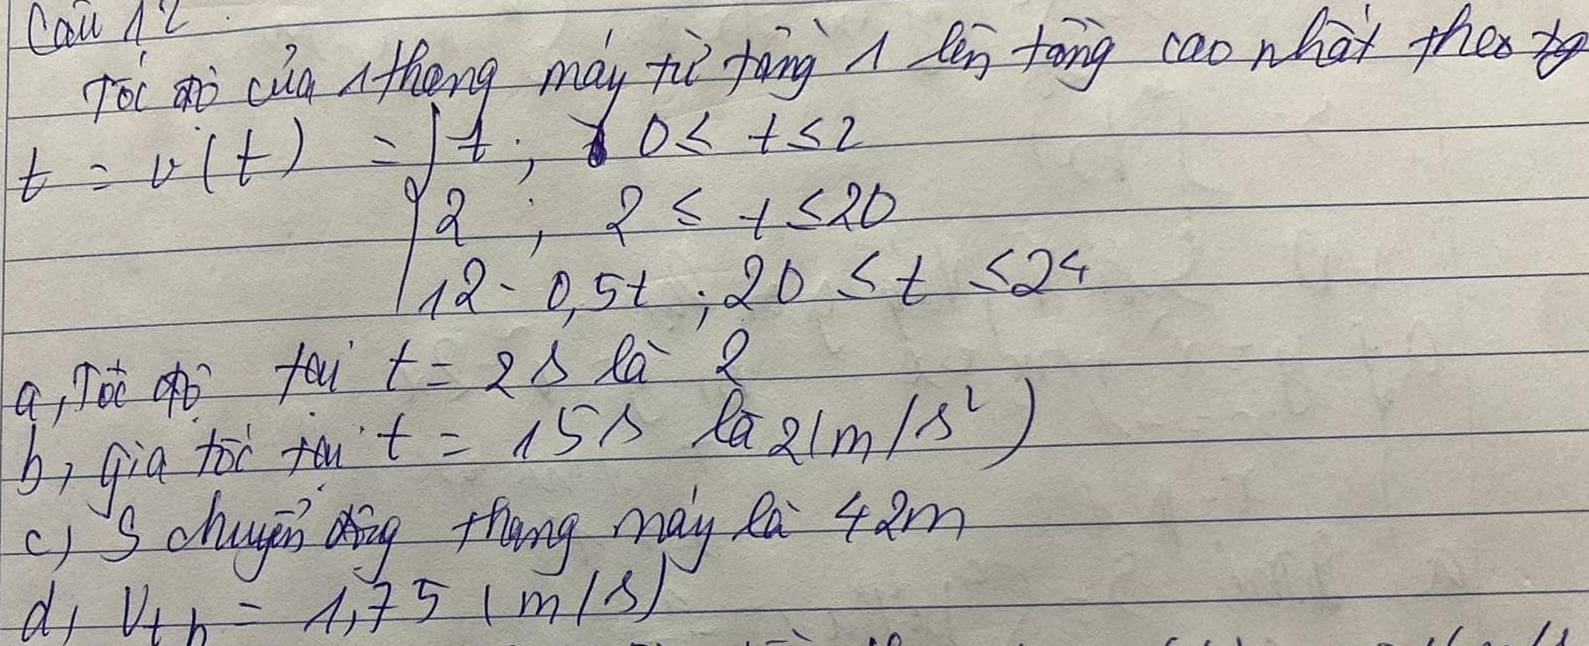 Câu 12
Tốc độ của 1 thang máy từ tầng 1 lên tầng cao nhất theo tg
t = v(t) = { t ; 0 ≤ t ≤ 2
2 ; 2 ≤ t ≤ 20
12 - 0,5t ; 20 ≤ t ≤ 24
a, Tốc độ tại t = 2s là 2
b, gia tốc tại t = 15s là 2(m/s²)
c) S chuyển động thang máy là 42m
d, Vtb = 1,75 (m/s)